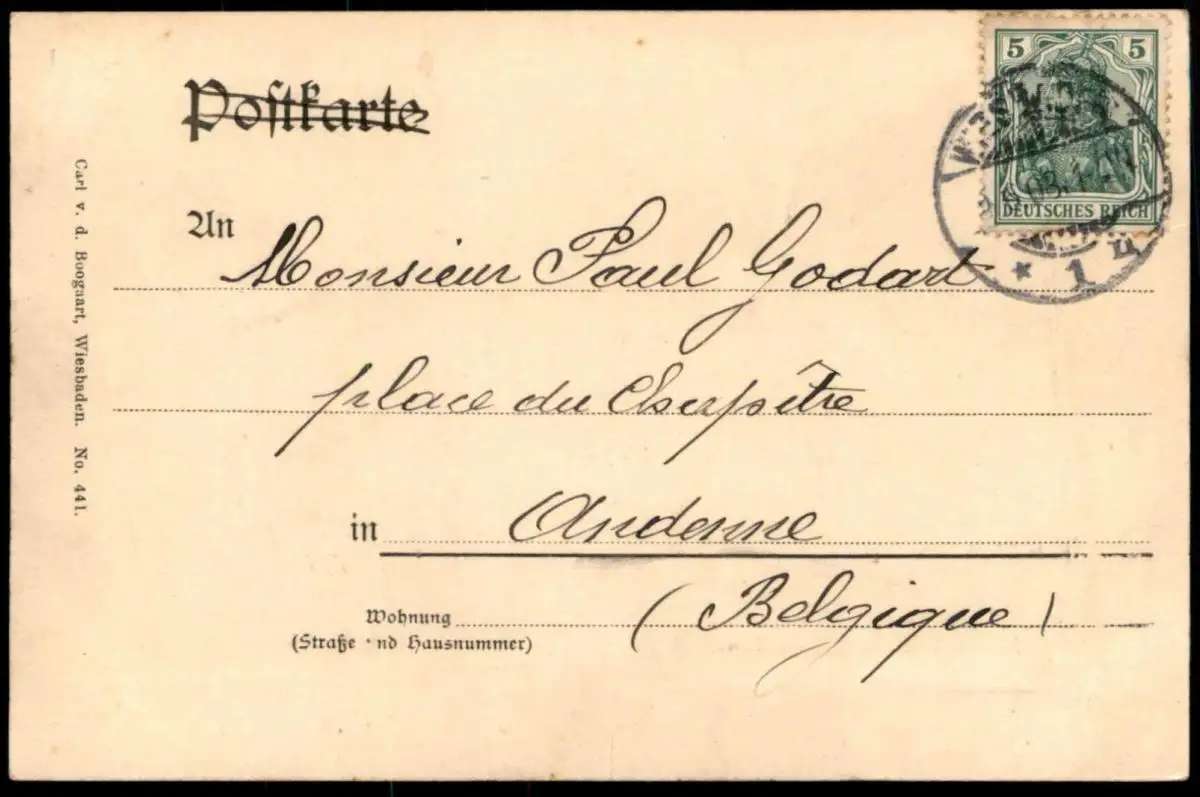 Postkarte
5 5
DEUTSCHES REICH
03. 1
* 1 n
An Monsieur Paul Godart
place du Chapître
in Andenne
(Belgique)
Wohnung
(Straße nd Hausnummer)
Carl v. d. Boogaart, Wiesbaden. No. 441.